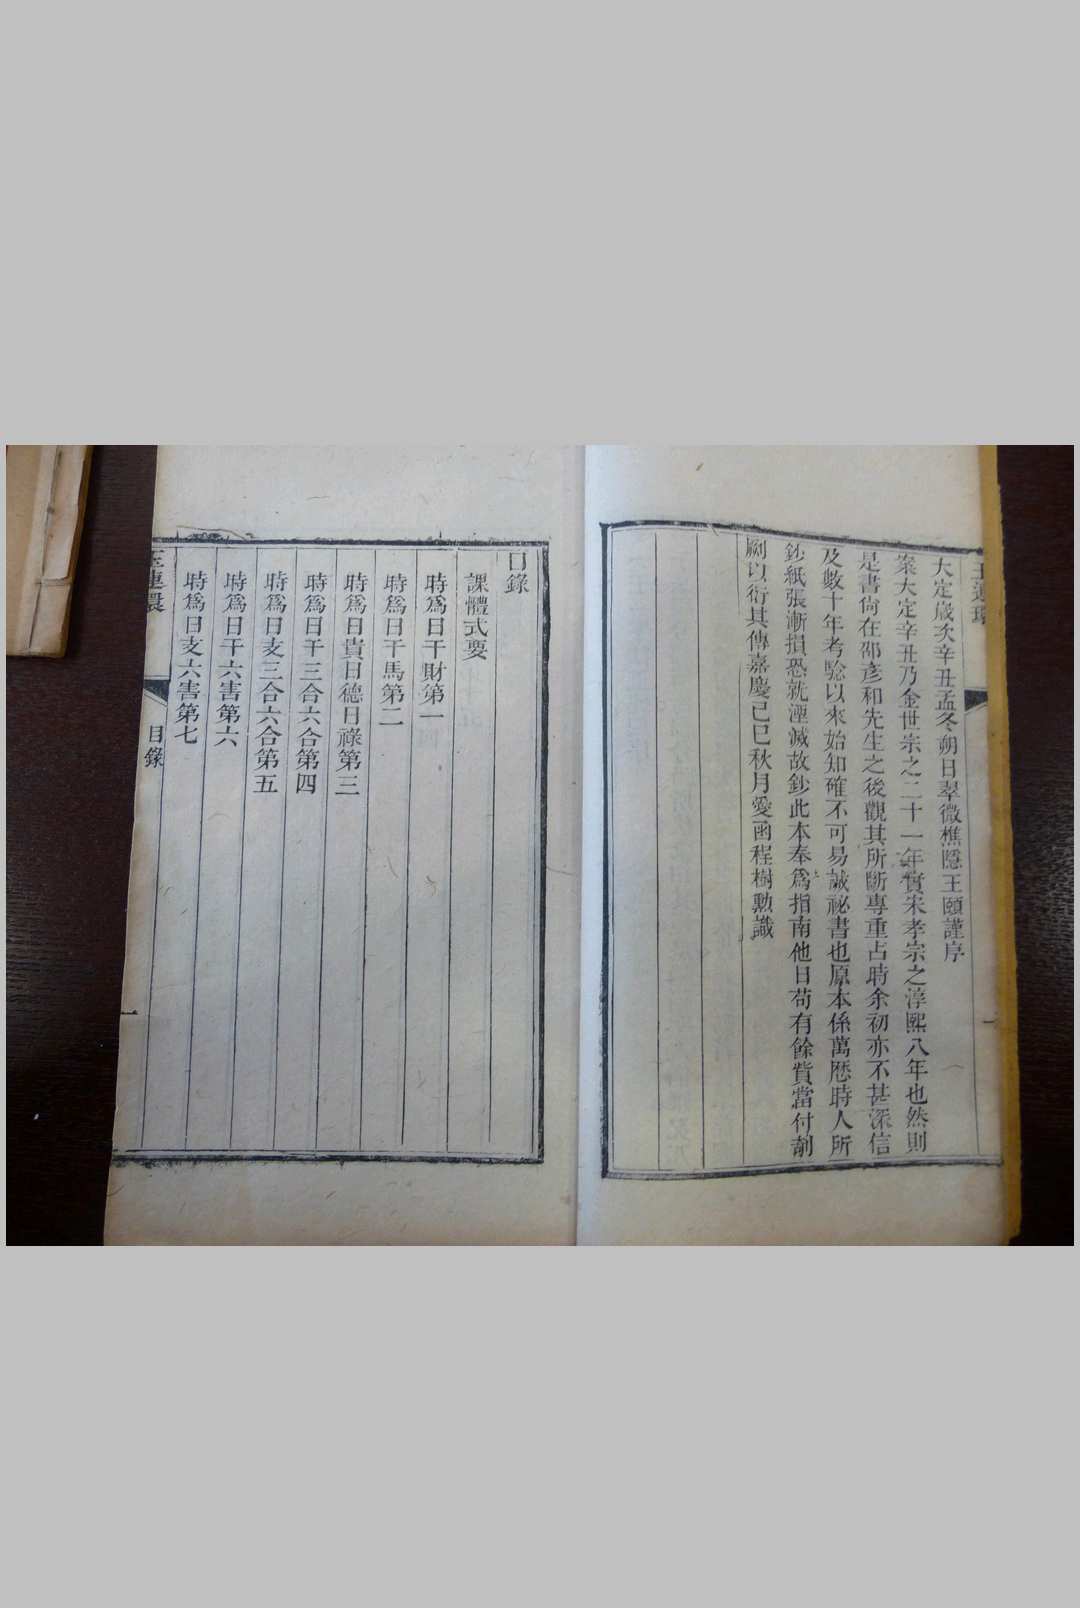 玉連環
大定歲次辛丑孟冬朔日翠微樵隱王頤謹序
案大定辛丑乃金世宗之二十一年實宋孝宗之淳熙八年也然則
是書尙在邵彥和先生之後觀其所斷專重占時余初亦不甚深信
及數十年考驗以來始知確不可易誠祕書也原本係萬歷時人所
鈔紙張漸損恐就湮滅故鈔此本奉爲指南他日苟有餘貲當付剞
劂以衍其傳嘉慶己巳秋月愛函程樹勳識
一
目錄
課體式要
時爲日干財第一
時爲日干馬第二
時爲日貴日德日祿第三
時爲日干三合六合第四
時爲日支三合六合第五
時爲日干六害第六
時爲日支六害第七
玉連環
目錄
一